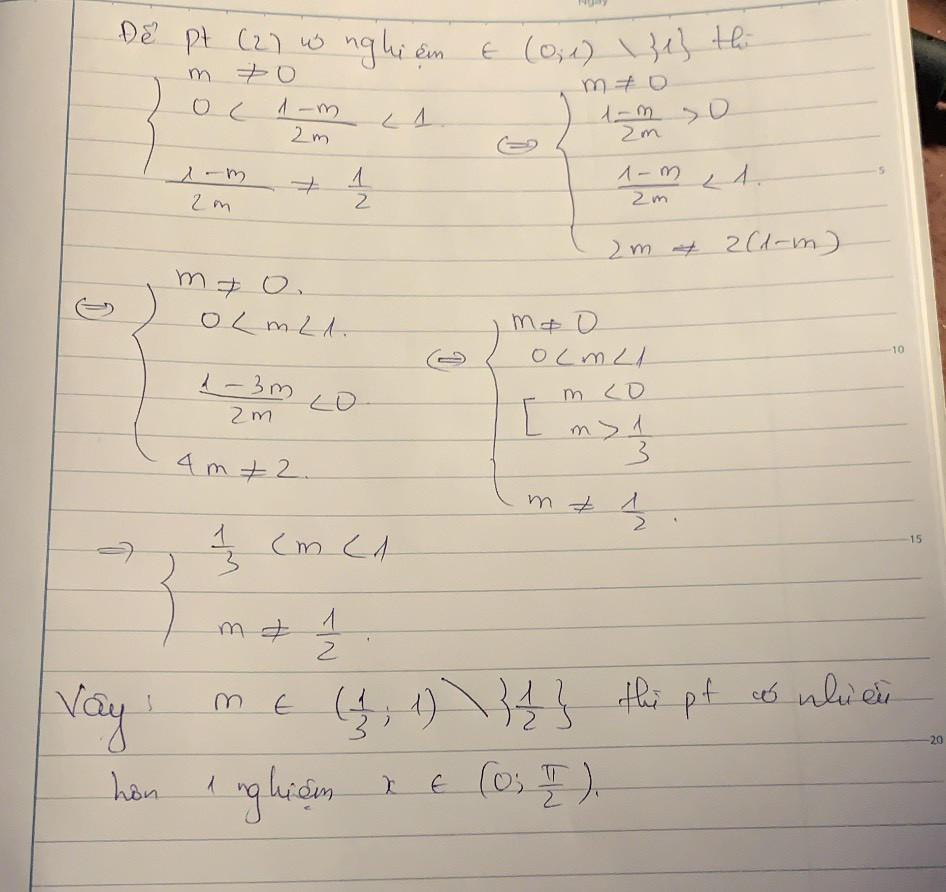 Ngày
Để pt (2) có nghiệm ∈ (0;1) \ {1} thì
{ m ≠ 0
0 < (1-m)/(2m) < 1
(1-m)/(2m) ≠ 1/2
⇔ { m ≠ 0
(1-m)/(2m) > 0
(1-m)/(2m) < 1.
2m ≠ 2(1-m)
⇔ { m ≠ 0.
0 < m < 1.
(1-3m)/(2m) < 0
4m ≠ 2.
⇔ { m ≠ 0
0 < m < 1
[ m < 0
m > 1/3
m ≠ 1/2.
⇒ { 1/3 < m < 1
m ≠ 1/2.
Vậy: m ∈ (1/3; 1) \ {1/2} thì pt có nhiều
hơn 1 nghiệm x ∈ (0; π/2).
5
10
15
20